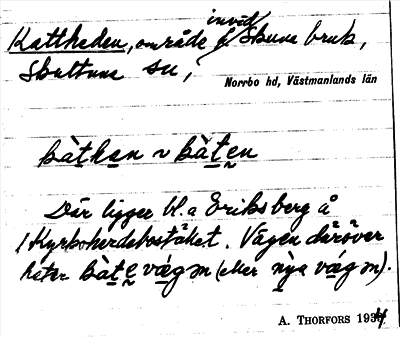 Kattheden, område invid Skuva bruk,
Skultuna sn,
Norrbo hd, Västmanlands län
bàt̲ha̲n ~ bàt̲e̲n
Där ligger bl. a Eriksberg å
Kyrkoherdebostället. Vägen däröver
heter bàt̲e̲ vä̀gən (eller nỳa vä̀gən).
A. THORFORS 1934